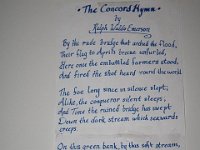 • The Concord Hymn •
by
Ralph Waldo Emerson
By the rude bridge that arched the flood,
Their flag to April's breeze unfurled,
Here once the embattled farmers stood,
And fired the shot heard round the world.
The foe long since in silence slept;
Alike, the conqueror silent sleeps;
And Time the ruined bridge has swept
Down the dark stream which seawards
creeps
On this green bank, by this soft stream,